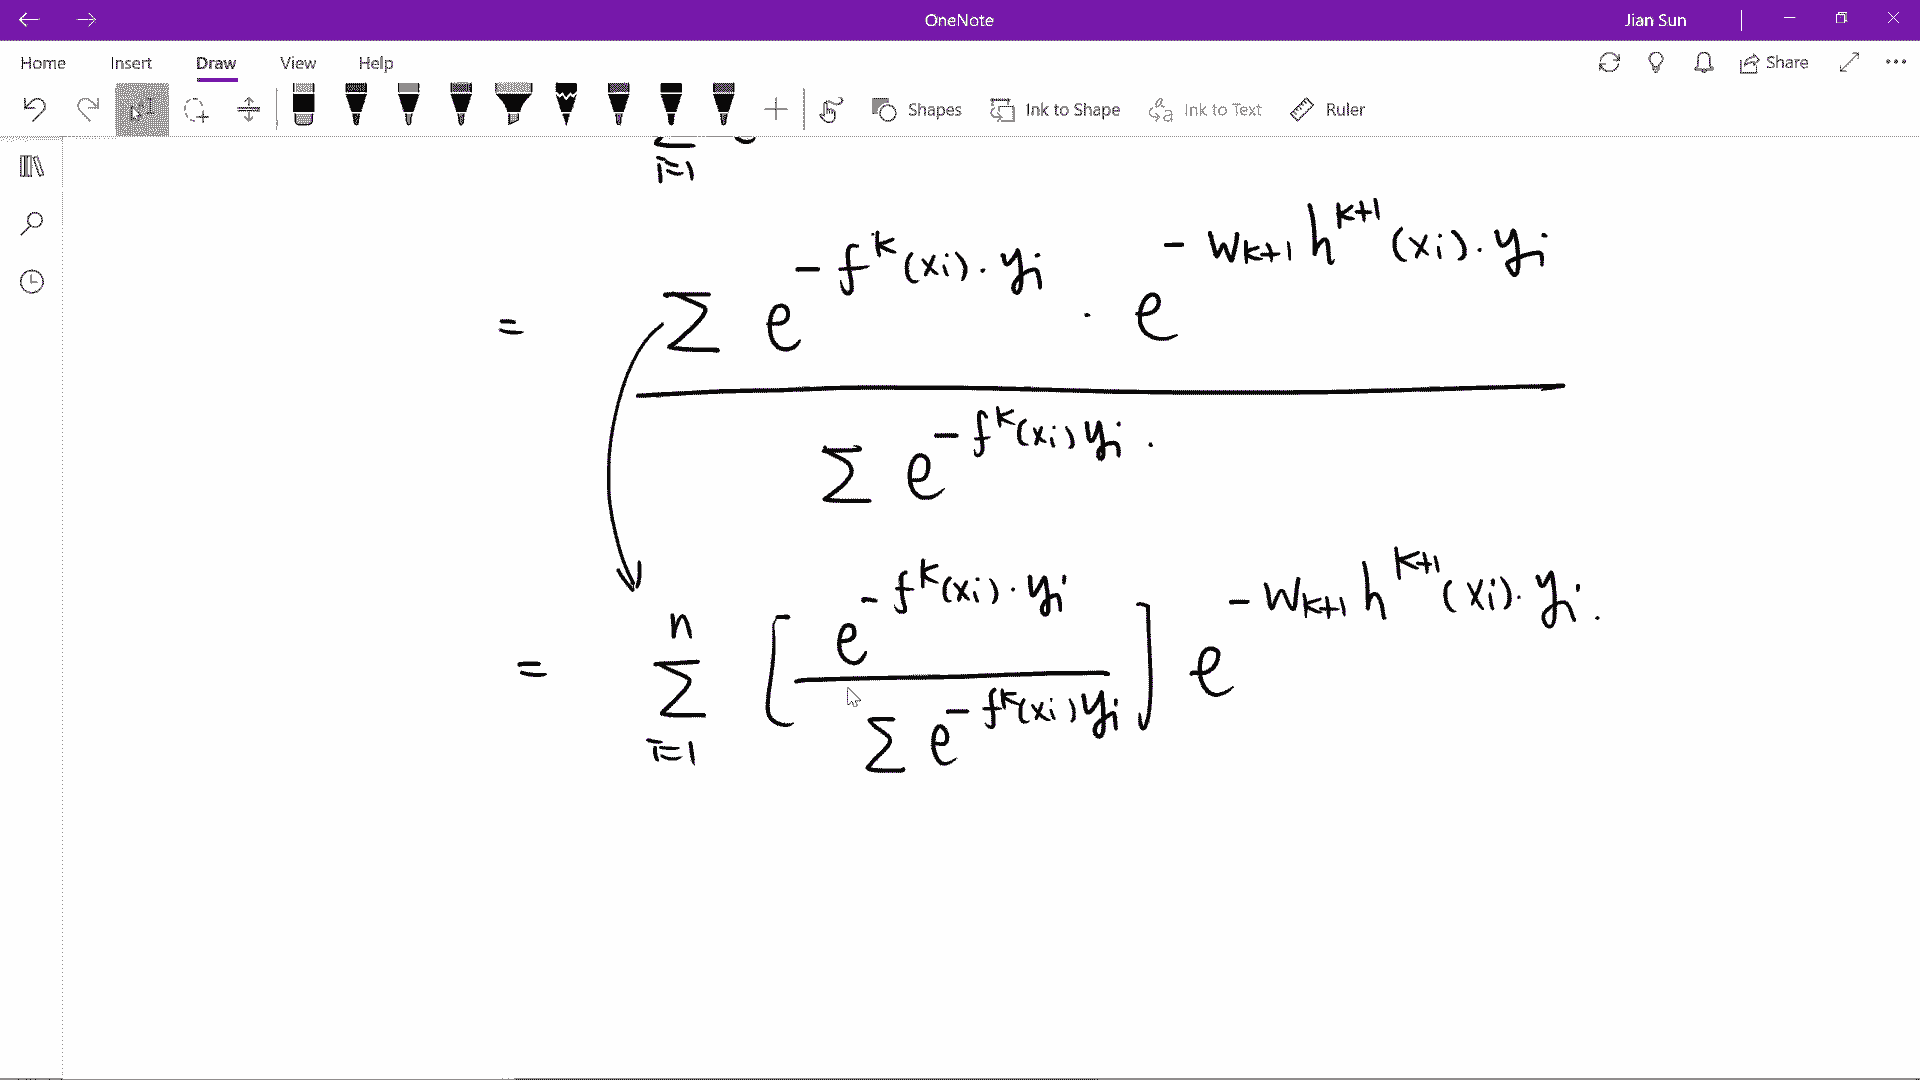 OneNote
Jian Sun
Home Insert Draw View Help
Share
Shapes Ink to Shape Ink to Text Ruler
i=1
= Σ e^{-f^k(xi)·yi} · e^{-w_{k+1} h^{k+1}(xi)·yi}
Σ e^{-f^k(xi)yi}.
= Σ_{i=1}^{n} [ e^{-f^k(xi)·yi} / Σ e^{-f^k(xi)yi} ] e^{-w_{k+1} h^{k+1}(xi)·yi}.